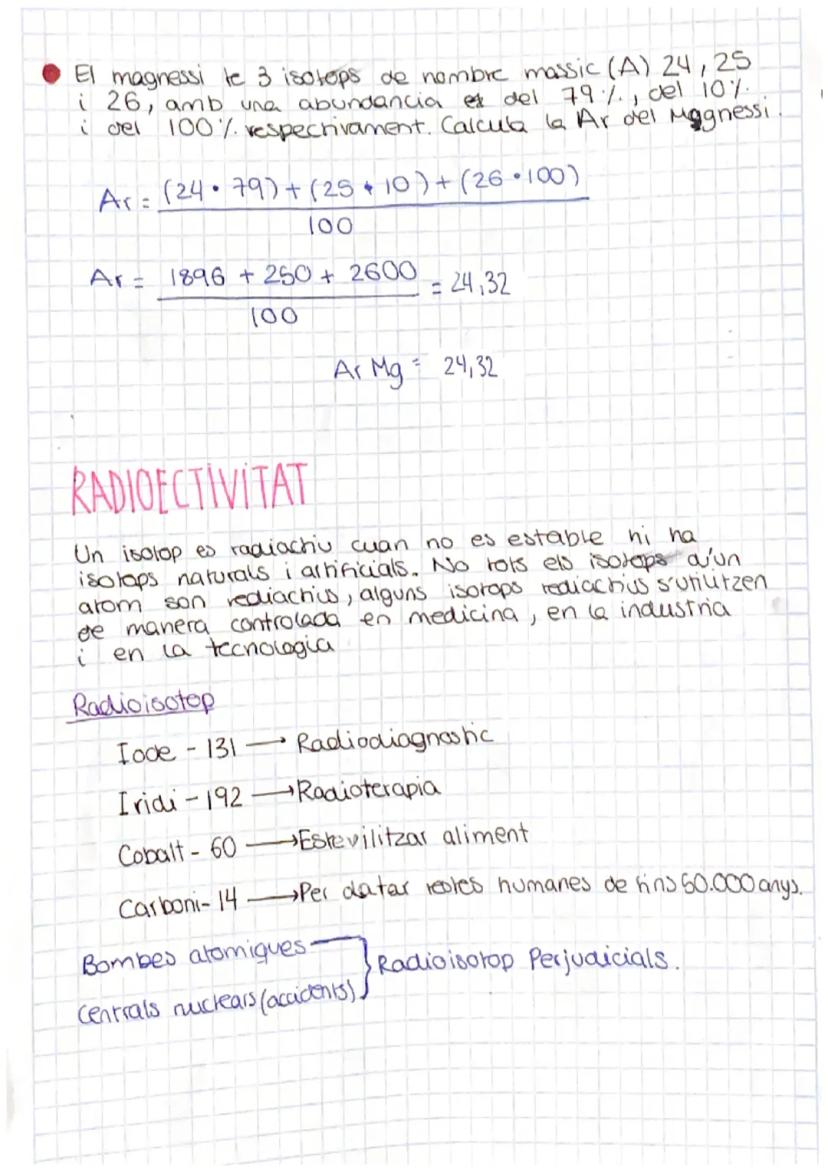 El magnessi te 3 isotops de nombre massic (A) 24, 25
i 26, amb una abundancia del 79%, del 10%
i del 100% respectivament. Calcula la Ar del Magnessi.
Ar = (24 · 79) + (25 · 10) + (26 · 100)
100
Ar = 1896 + 250 + 2600 = 24,32
100
Ar Mg = 24,32
RADIOECTIVITAT
Un isotop es radiactiu cuan no es estable ni ha
isotops naturals i artificials. No tots els isotops d'un
atom son rediactius, alguns isotops rediactius s'utilitzen
de manera controlada en medicina, en la industria
i en la tecnologia
Radioisotop
Iode - 131 → Radiodiagnostic
Iridi - 192 → Radioterapia
Cobalt - 60 → Esterilitzar aliment
Carboni - 14 → Per datar restes humanes de fins 50.000 anys.
Bombes atomiques
Centrals nuclears (accidents) } Radioisotop Perjudicials.